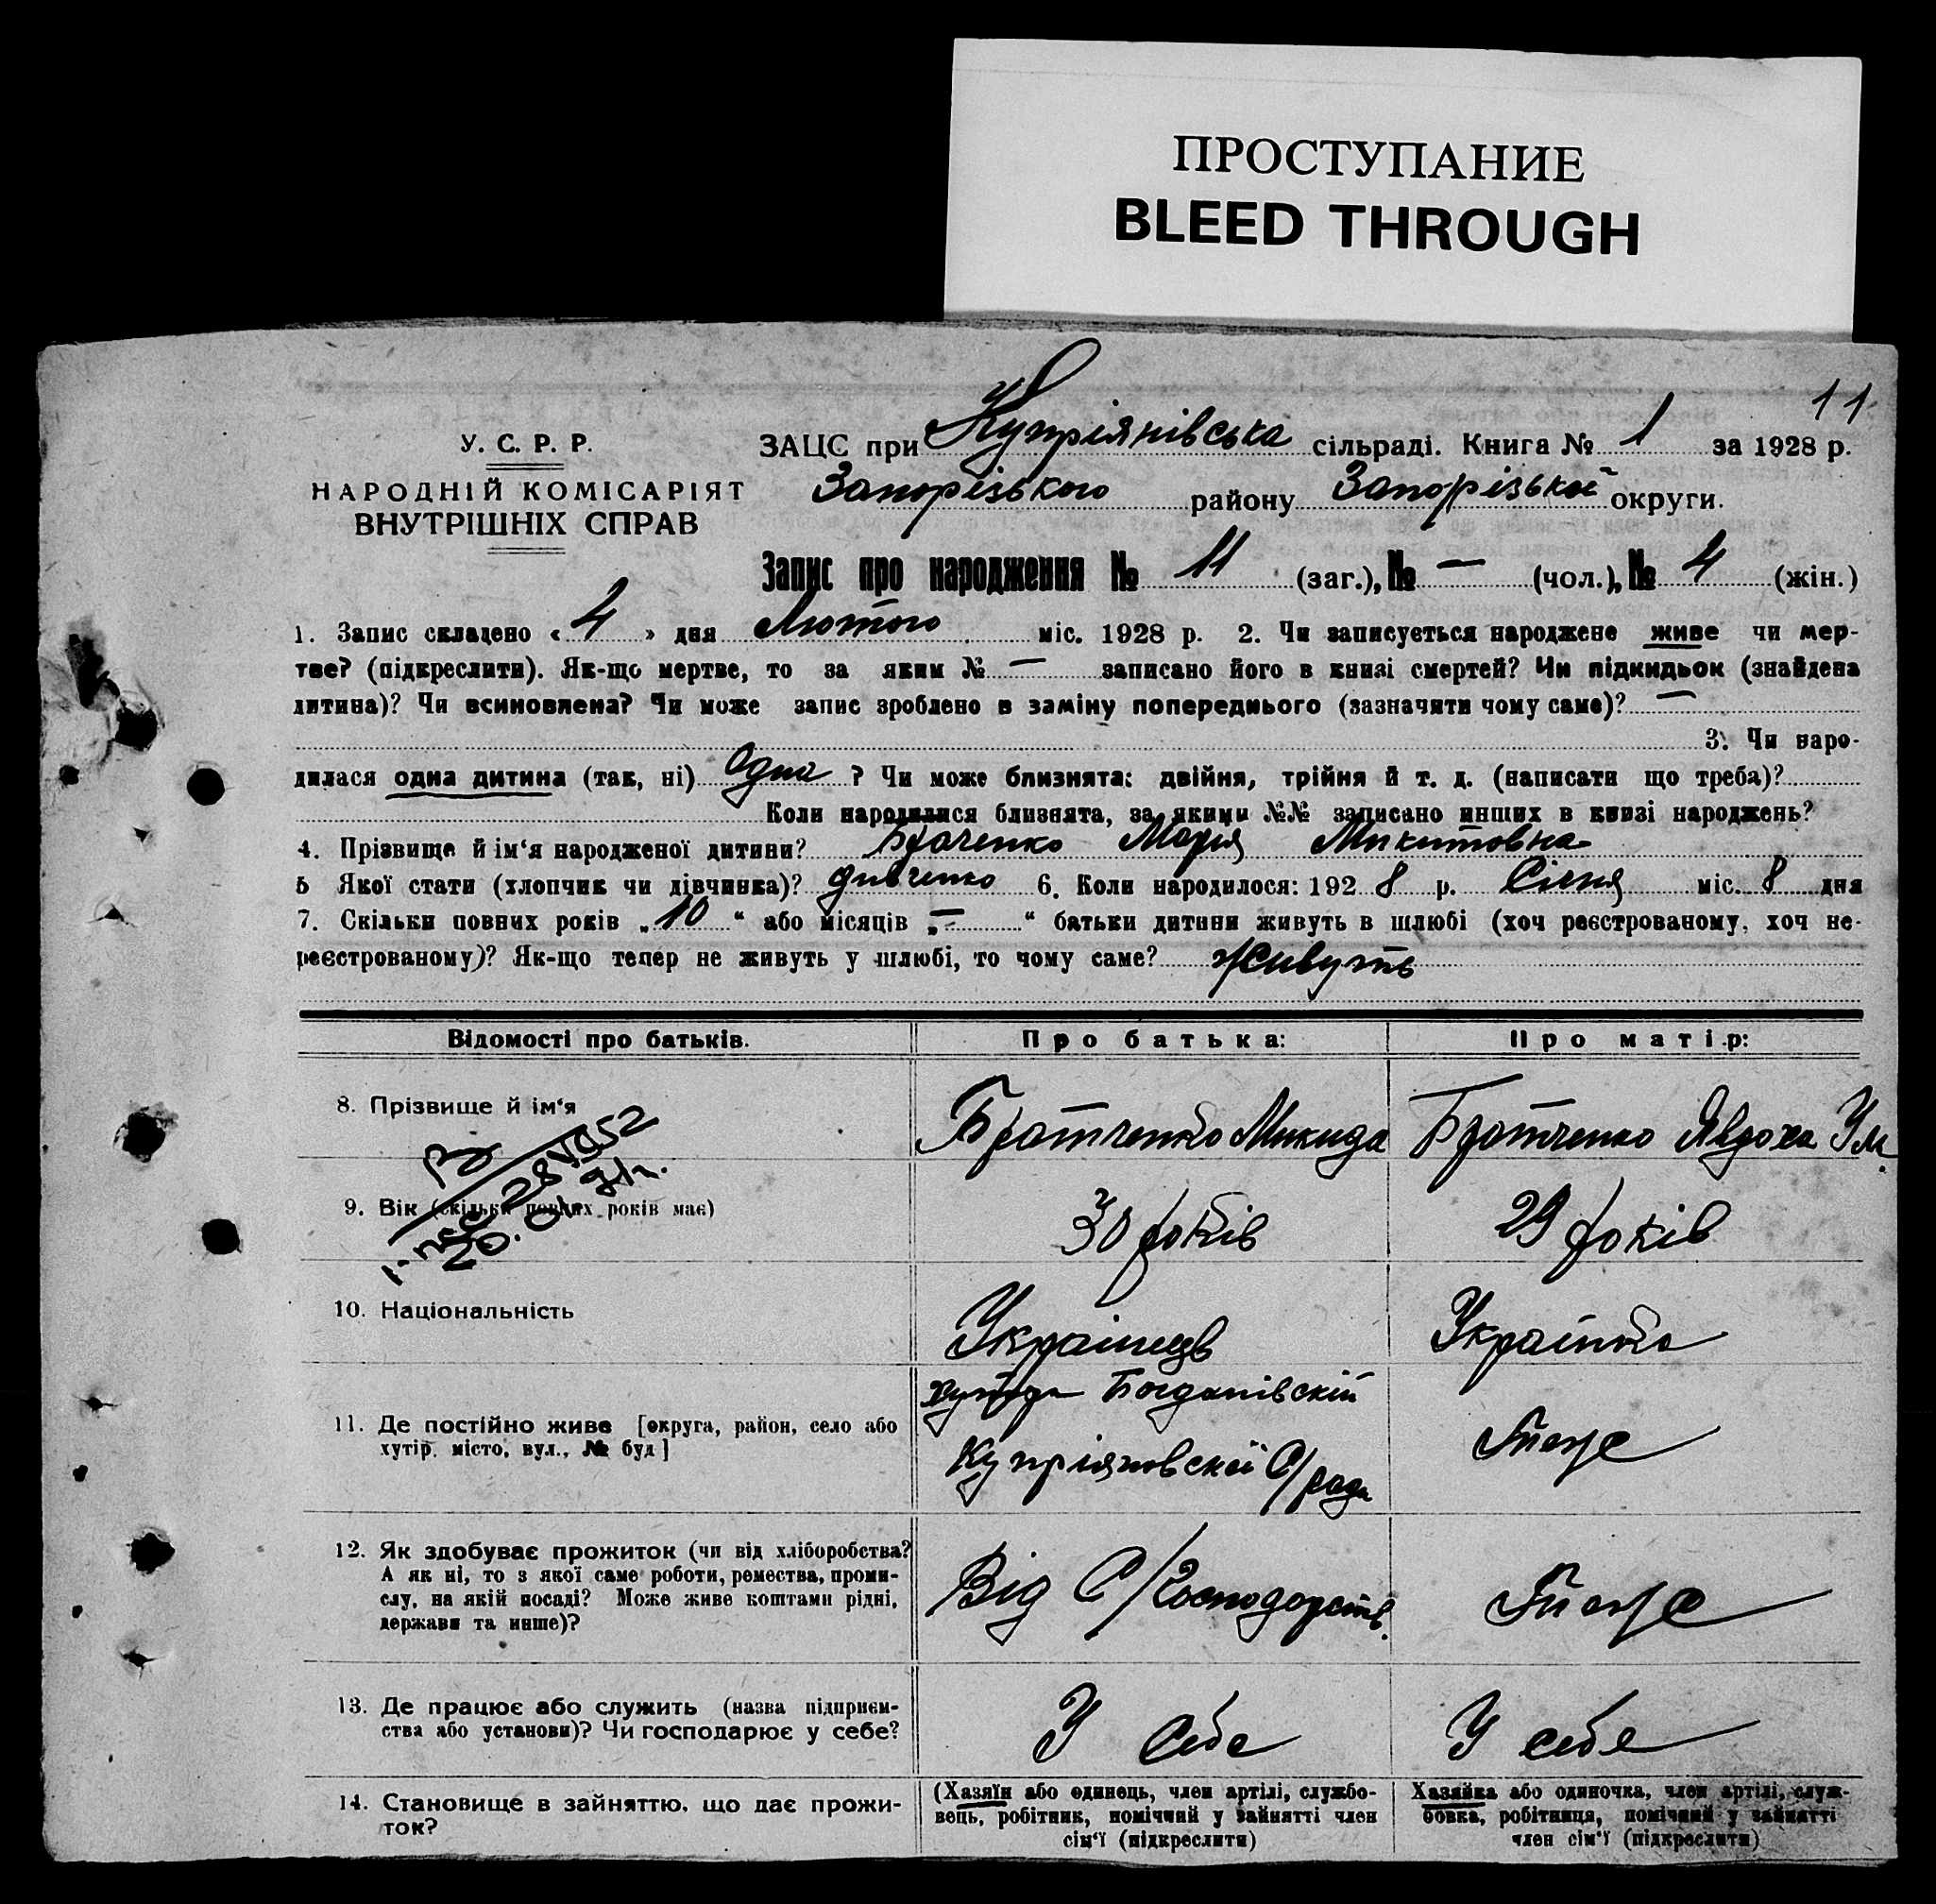 ПРОСТУПАНИЕ
BLEED THROUGH
11
У. С. Р. Р.
НАРОДНІЙ КОМІСАРІЯТ
ВНУТРІШНІХ СПРАВ
ЗАЦС при Купріянівська сільраді. Книга № 1 за 1928 р.
Запорізького району Запорізької округи.
Запис про народження № 11 (заг.), № — (чол.), № 4 (жін.)
1. Запис складено « 4 » дня Лютого міс. 1928 р. 2. Чи записується народжене живе чи мер-
тве? (підкреслити). Як-що мертве, то за яким № — записано його в книзі смертей? Чи підкидьок (знайдена
дитина)? Чи всиновлена? Чи може запис зроблено в заміну попереднього (зазначити чому саме)? —
3. Чи наро-
дилася одна дитина (так, ні) Одна ? Чи може близнята: двійня, трійня й т. д. (написати що треба)?
Коли народилися близнята, за якими №№ записано инших в книзі народжень?
4. Прізвище й ім‘я народженої дитини? Браченко Марія Микитовна
5 Якої стати (хлопчик чи дівчинка)? дивченко 6. Коли народилося: 192 8 р. Січня міс. 8 дня
7. Скільки повних років „ 10 “ або місяців „ — “ батьки дитини живуть в шлюбі (хоч реєстрованому, хоч не-
реєстрованому)? Як-що тепер не живуть у шлюбі, то чому саме? живуть
Відомості про батьків. Про батька: Про матір:
8. Прізвище й ім‘я Братченко Микида Братченко Явдоха Ул.
9. Вік (скільки повних років має) 30 років 29 років
10. Національність Українець Українка
11. Де постійно живе [округа, район, село або
хутір, місто, вул., № буд]
хутора Богданівскій
Купріяновскої С/рада
Тоже
12. Як здобуває прожиток (чи від хліборобства?
А як ні, то з якої саме роботи, ремества, проми-
слу, на якій посаді? Може живе коштами рідні,
держави та инше)?
Від С/Господарств.
Тоже
13. Де працює або служить (назва підприєм-
ства або установи)? Чи господарює у себе?
У себе У себе
14. Становище в зайняттю, що дає прожи-
ток?
(Хазяїн або одинець, член артілі, службо-
вець, робітник, помічний у зайнятті член
сім‘ї (підкреслити)
Хазяйка або одиночка, член артілі, служ-
бовка, робітниця, помічний у зайнятті
член сім‘ї (підкреслити)